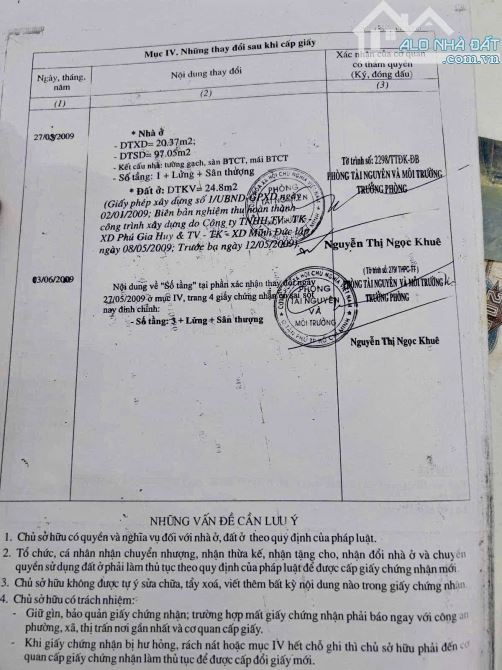 ALO NHÀ ĐẤT
.com.vn
Mục IV. Những thay đổi sau khi cấp giấy
Ngày, tháng, năm
Nội dung thay đổi
Xác nhận của cơ quan
có thẩm quyền
(Ký, đóng dấu)
(1)
(2)
(3)
27/05/2009
* Nhà ở
- DTXD= 20.37m2;
- DTSD= 97.05m2
- Kết cấu nhà: tường gạch, sàn BTCT, mái BTCT
- Số tầng: 1 + Lửng + Sân thượng
* Đất ở: DTKV= 24.8m2
(Giấy phép xây dựng số 1/UBND-GPXD ngày
02/01/2009; Biên bản nghiệm thu hoàn thành
công trình xây dựng do Công ty TNHH TV - TK
XD Phú Gia Huy & TV - TK - XD Minh Đức lập
ngày 08/05/2009; Trước bạ ngày 12/05/2009)
Tờ trình số: 2298/TTĐK-ĐB
PHÒNG TÀI NGUYÊN VÀ MÔI TRƯỜNG
TRƯỞNG PHÒNG
Nguyễn Thị Ngọc Khuê
03/06/2009
Nội dung về "Số tầng" tại phần xác nhận thay đổi ngày
27/05/2009 ở mục IV, trang 4 giấy chứng nhận có sai sót
nay đính chính:
- Số tầng: 3 + Lửng + Sân thượng
PHÒNG
TÀI NGUYÊN
VÀ
MÔI TRƯỜNG
PHÒNG TÀI NGUYÊN VÀ MÔI TRƯỜNG
TRƯỞNG PHÒNG
Nguyễn Thị Ngọc Khuê
NHỮNG VẤN ĐỀ CẦN LƯU Ý
1. Chủ sở hữu có quyền và nghĩa vụ đối với nhà ở, đất ở theo quy định của pháp luật.
2. Tổ chức, cá nhân nhận chuyển nhượng, nhận thừa kế, nhận tặng cho, nhận đổi nhà ở và chuyển
quyền sử dụng đất ở phải làm thủ tục theo quy định của pháp luật để được cấp giấy chứng nhận mới.
3. Chủ sở hữu không được tự sửa chữa, tẩy xoá, viết thêm bất kỳ nội dung nào trong giấy chứng nhận.
4. Chủ sở hữu có trách nhiệm:
- Giữ gìn, bảo quản giấy chứng nhận; trường hợp mất giấy chứng nhận phải báo ngay với công an
phường, xã, thị trấn nơi gần nhất và cơ quan cấp giấy.
- Khi giấy chứng nhận bị hư hỏng, rách nát hoặc mục IV hết chỗ ghi thì chủ sở hữu phải đến cơ
quan cấp giấy chứng nhận làm thủ tục để được cấp đổi giấy mới.